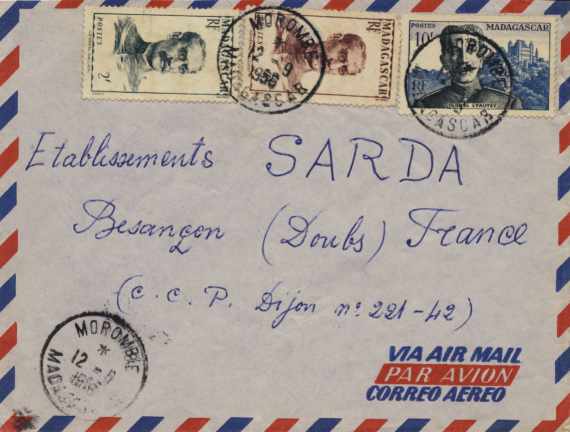 POSTES
2F
MADAGASCAR
RF
MADAGASCAR
RF
POSTES
MADAGASCAR
10F
RF
GENERAL LYAUTEY
MOROMBE
1956
MADAGASCAR
MOROMBE
GASCAR
Etablissements SARDA
Besançon (Doubs) France
(C.C.P. Dijon n° 221-42)
MOROMBE
*
12
MADAGASCAR
VIA AIR MAIL
PAR AVION
CORREO AEREO